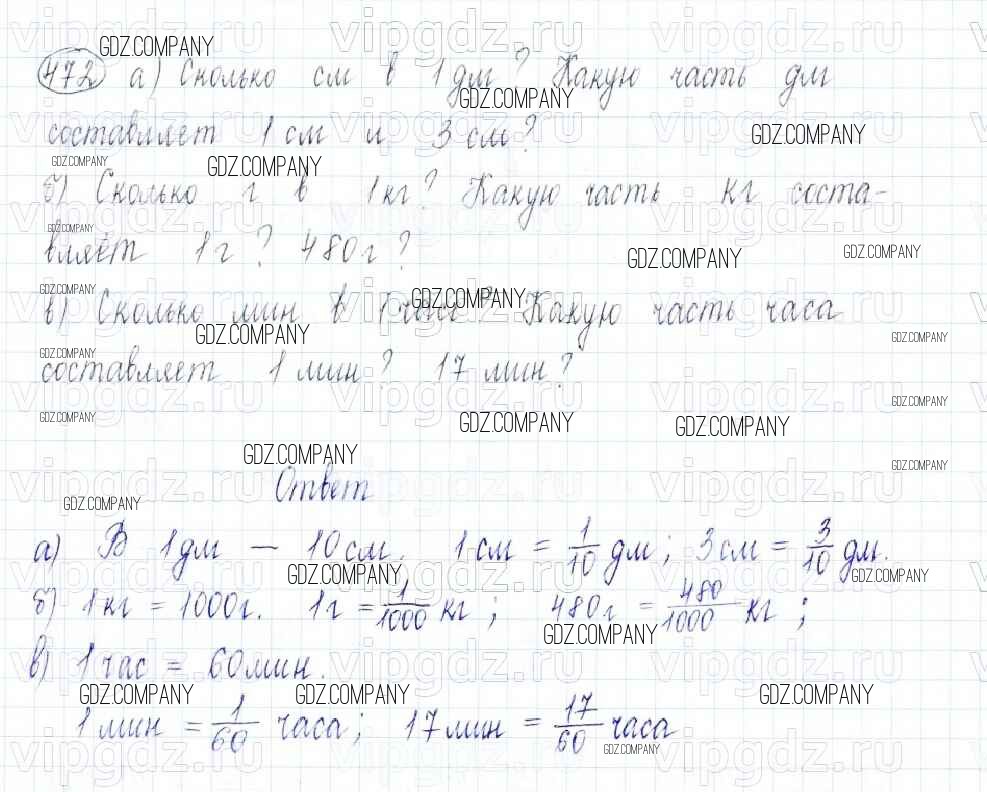 472 а) Сколько см в 1 дм? Какую часть дм
составляет 1 см и 3 см?
б) Сколько г в 1 кг? Какую часть кг соста-
вляет 1 г? 480 г?
в) Сколько мин в 1 часе? Какую часть часа
составляет 1 мин? 17 мин?
Ответ
а) В 1 дм — 10 см. 1 см = 1/10 дм; 3 см = 3/10 дм.
б) 1 кг = 1000 г. 1 г = 1/1000 кг; 480 г = 480/1000 кг;
в) 1 час = 60 мин.
1 мин = 1/60 часа; 17 мин = 17/60 часа
GDZ.COMPANY
vipgdz.ru